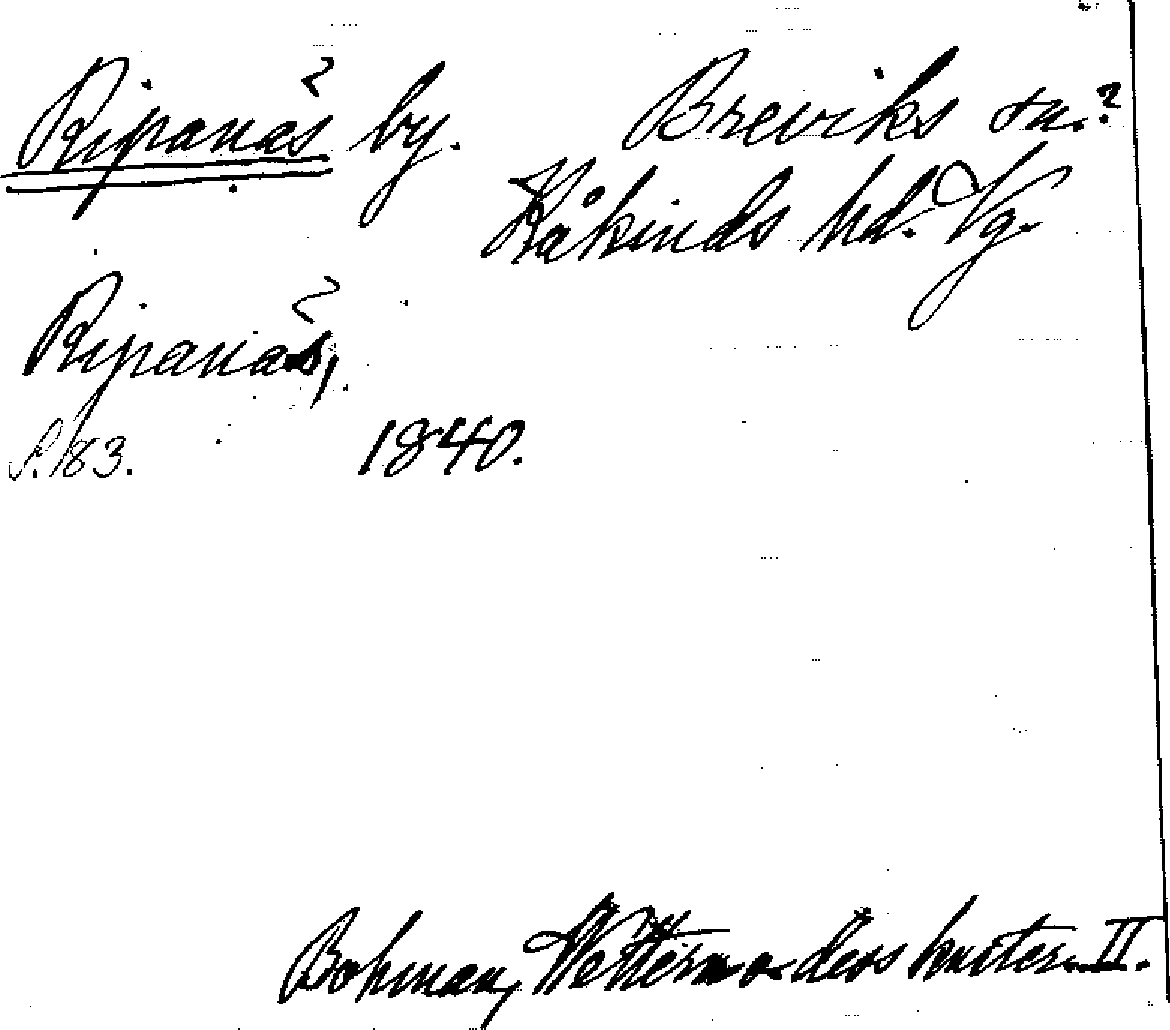 Ripanäs by. Breviks sn.?
Kåkinds hd. Vg.
Ripanäs,
S. 183. 1840.
Bohman, Wettern o. dess kuster. II.